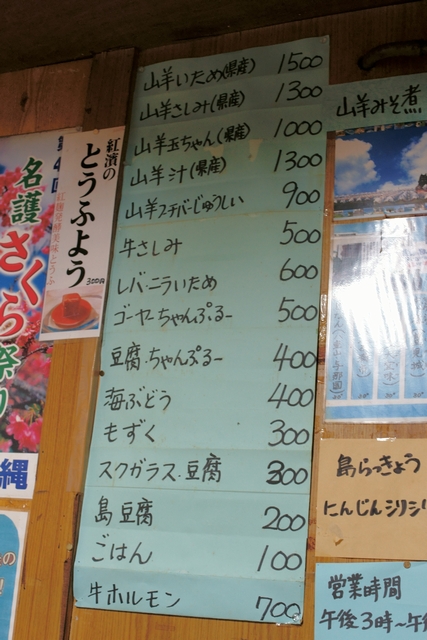 山羊いため(県産) 1500
山羊さしみ(県産) 1300
山羊玉ちゃん(県産) 1000
山羊汁(県産) 1300
山羊フチバーじゅうしい 900
牛さしみ 500
レバーニラいため 600
ゴーヤーちゃんぷるー 500
豆腐ちゃんぷるー 400
海ぶどう 400
もずく 300
スクガラス.豆腐 300
島豆腐 200
ごはん 100
牛ホルモン 700
紅濱の
とうふよう
紅麹発酵美味とうふ
300円
名護
さくら祭り
縄
山羊みそ煮
島らっきょう
にんじんシリシリ
営業時間
午後3時〜午